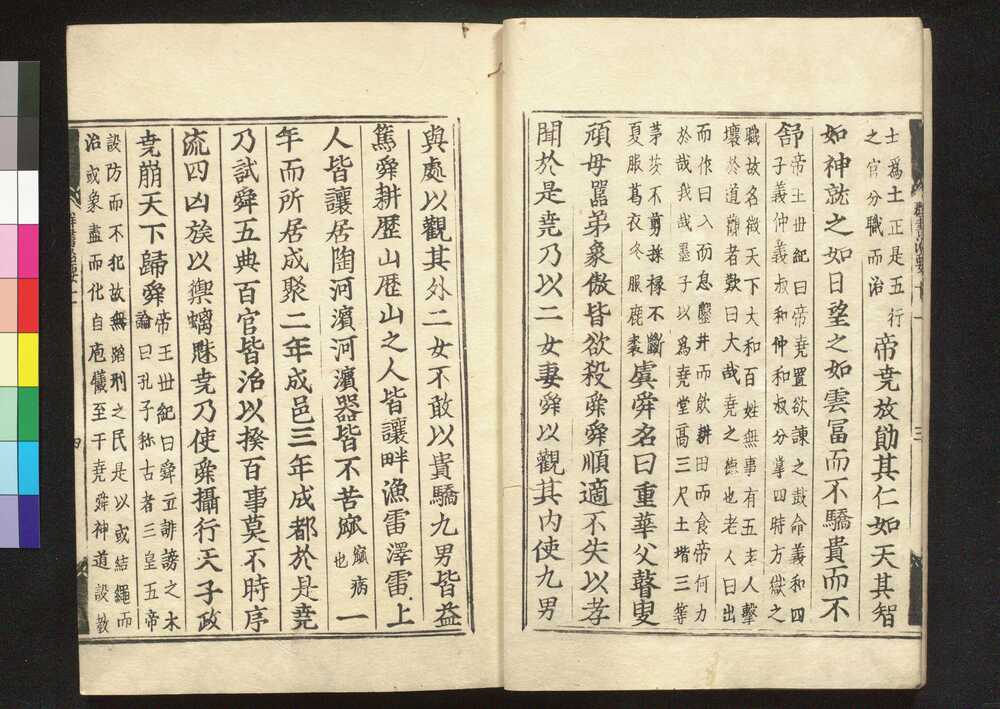 士爲土正是五行
之官分職而治
帝堯放勛其仁如天其智
如神就之如日望之如雲冨而不驕貴而不
舒
帝王世紀曰帝堯置欲諫之鼓命羲和四
子羲仲羲叔和仲和叔分掌四時方嶽之
職故名徴天下大和百姓無事有五老人擊
壤於道觀者歎曰大哉堯之德也老人曰出
而作日入而息鑿井而飲耕田而食帝何力
於哉我哉墨子以爲堯堂高三尺土堦三等
茅茨不剪採椽不斲
夏服葛衣冬服鹿裘
虞舜名曰重華父瞽叟
頑母嚚弟象傲皆欲殺舜舜順適不失以孝
聞於是堯乃以二女妻舜以觀其内使九男
與處以觀其外二女不敢以貴驕九男皆益
篤舜耕歷山歷山之人皆讓畔漁雷澤雷上
人皆讓居陶河濱河濱器皆不苦窳
窳病
也
一
年而所居成聚二年成邑三年成都於是堯
乃試舜五典百官皆治以揆百事莫不時序
流四凶族以禦螭魅堯乃使舜攝行天子政
堯崩天下歸舜
帝王世紀曰舜立誹謗之木
論曰孔子称古者三皇五帝
設防而不犯故無陷刑之民是以或結繩而
治或象畫而化自庖犧至于堯舜神道設教
群書治要十一
四